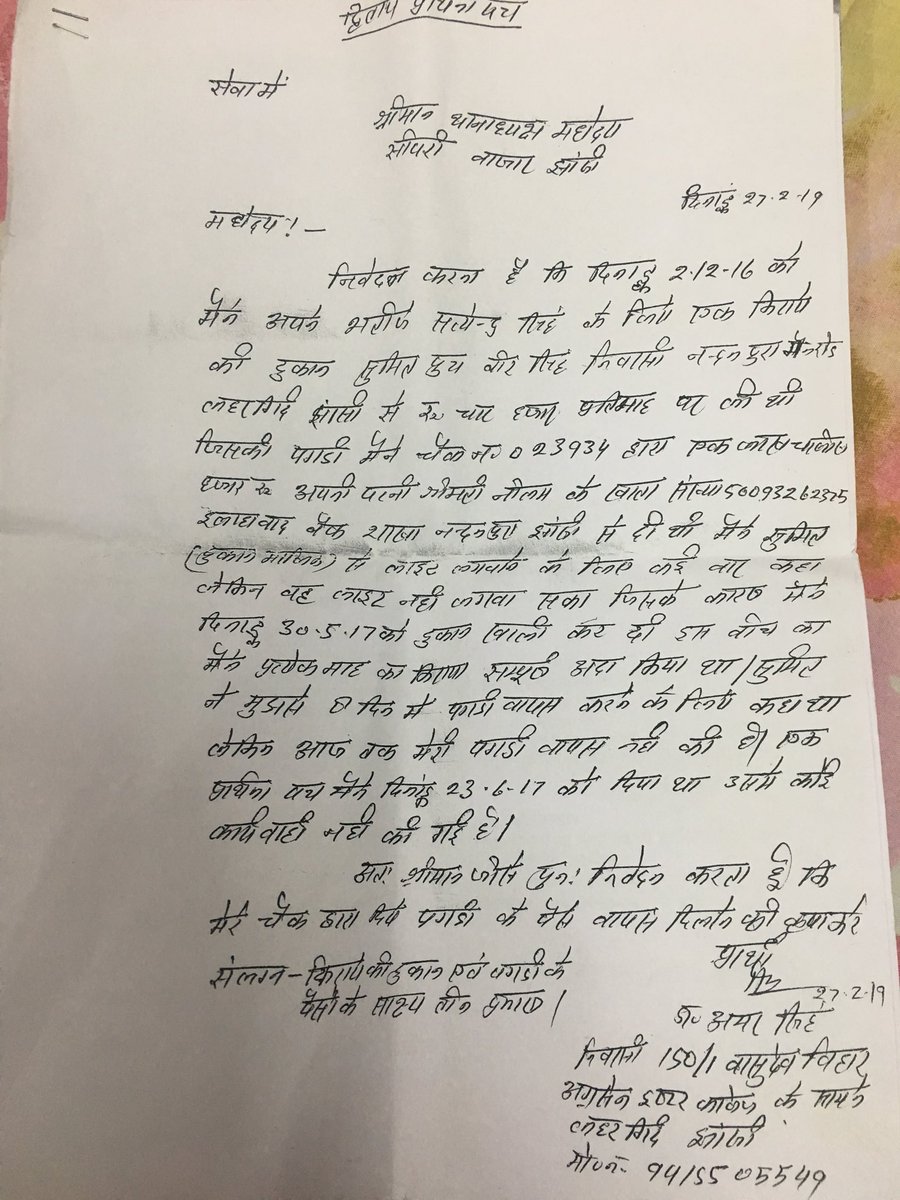 द्वितीय प्रार्थना पत्र
सेवा में
श्रीमान थानाध्यक्ष महोदय
सीपरी बाजार झांसी
दिनांक 27.2.19
महोदय! —
निवेदन करना है कि दिनांक 2.12-16 को
मैंने अपने भतीजे सत्येन्द्र सिंह के लिए एक किराये
की दुकान सुमित पुत्र वीर सिंह निवासी नन्दनपुरा मेनरोड
लहरगिर्द झांसी से रु चार हजार प्रतिमाह पर ली थी
जिसकी पगडी मैंने चैक न० 023934 द्वारा एक लाख चालीस
हजार रु अपनी पत्नी श्रीमती नीलम के खाता संख्या 50093262375
इलाहाबाद बैंक शाखा नन्दनपुरा झांसी से दी थी मैंने सुमित
(दुकान मालिक) से लाइट लगवाने के लिए कई बार कहा
लेकिन वह लाइट नही लगवा सका जिसके कारण मैंने
दिनांक 30.5.17 को दुकान खाली कर दी इस बीच का
मैंने प्रत्येक माह का किराया सम्पूर्ण अदा किया था / सुमित
ने मुझसे 8 दिन में पगडी वापस करने के लिए कहा था
लेकिन आज तक मेरी पगडी वापस नही की है / एक
प्रार्थना पत्र मैंने दिनांक 23.6-17 को दिया था उसमे कोई
कार्यवाही नही की गई है /
अतः श्रीमान जी से पुनः निवेदन करता हूँ कि
मेरे चैक द्वारा दिये पगडी के पैसे वापस दिलाने की कृपा करे
प्रार्थी
संलग्न - किराये की दुकान एवं पगडी के
पैसो के साक्ष्य तीन प्रमाण /
27.2.19
डा० अमर सिंह
निवासी 150/1 वासुदेव विहार
अग्रसेन इण्टर कालेज के सामने
लहर गिर्द झांसी
मो०न०- 9415505549